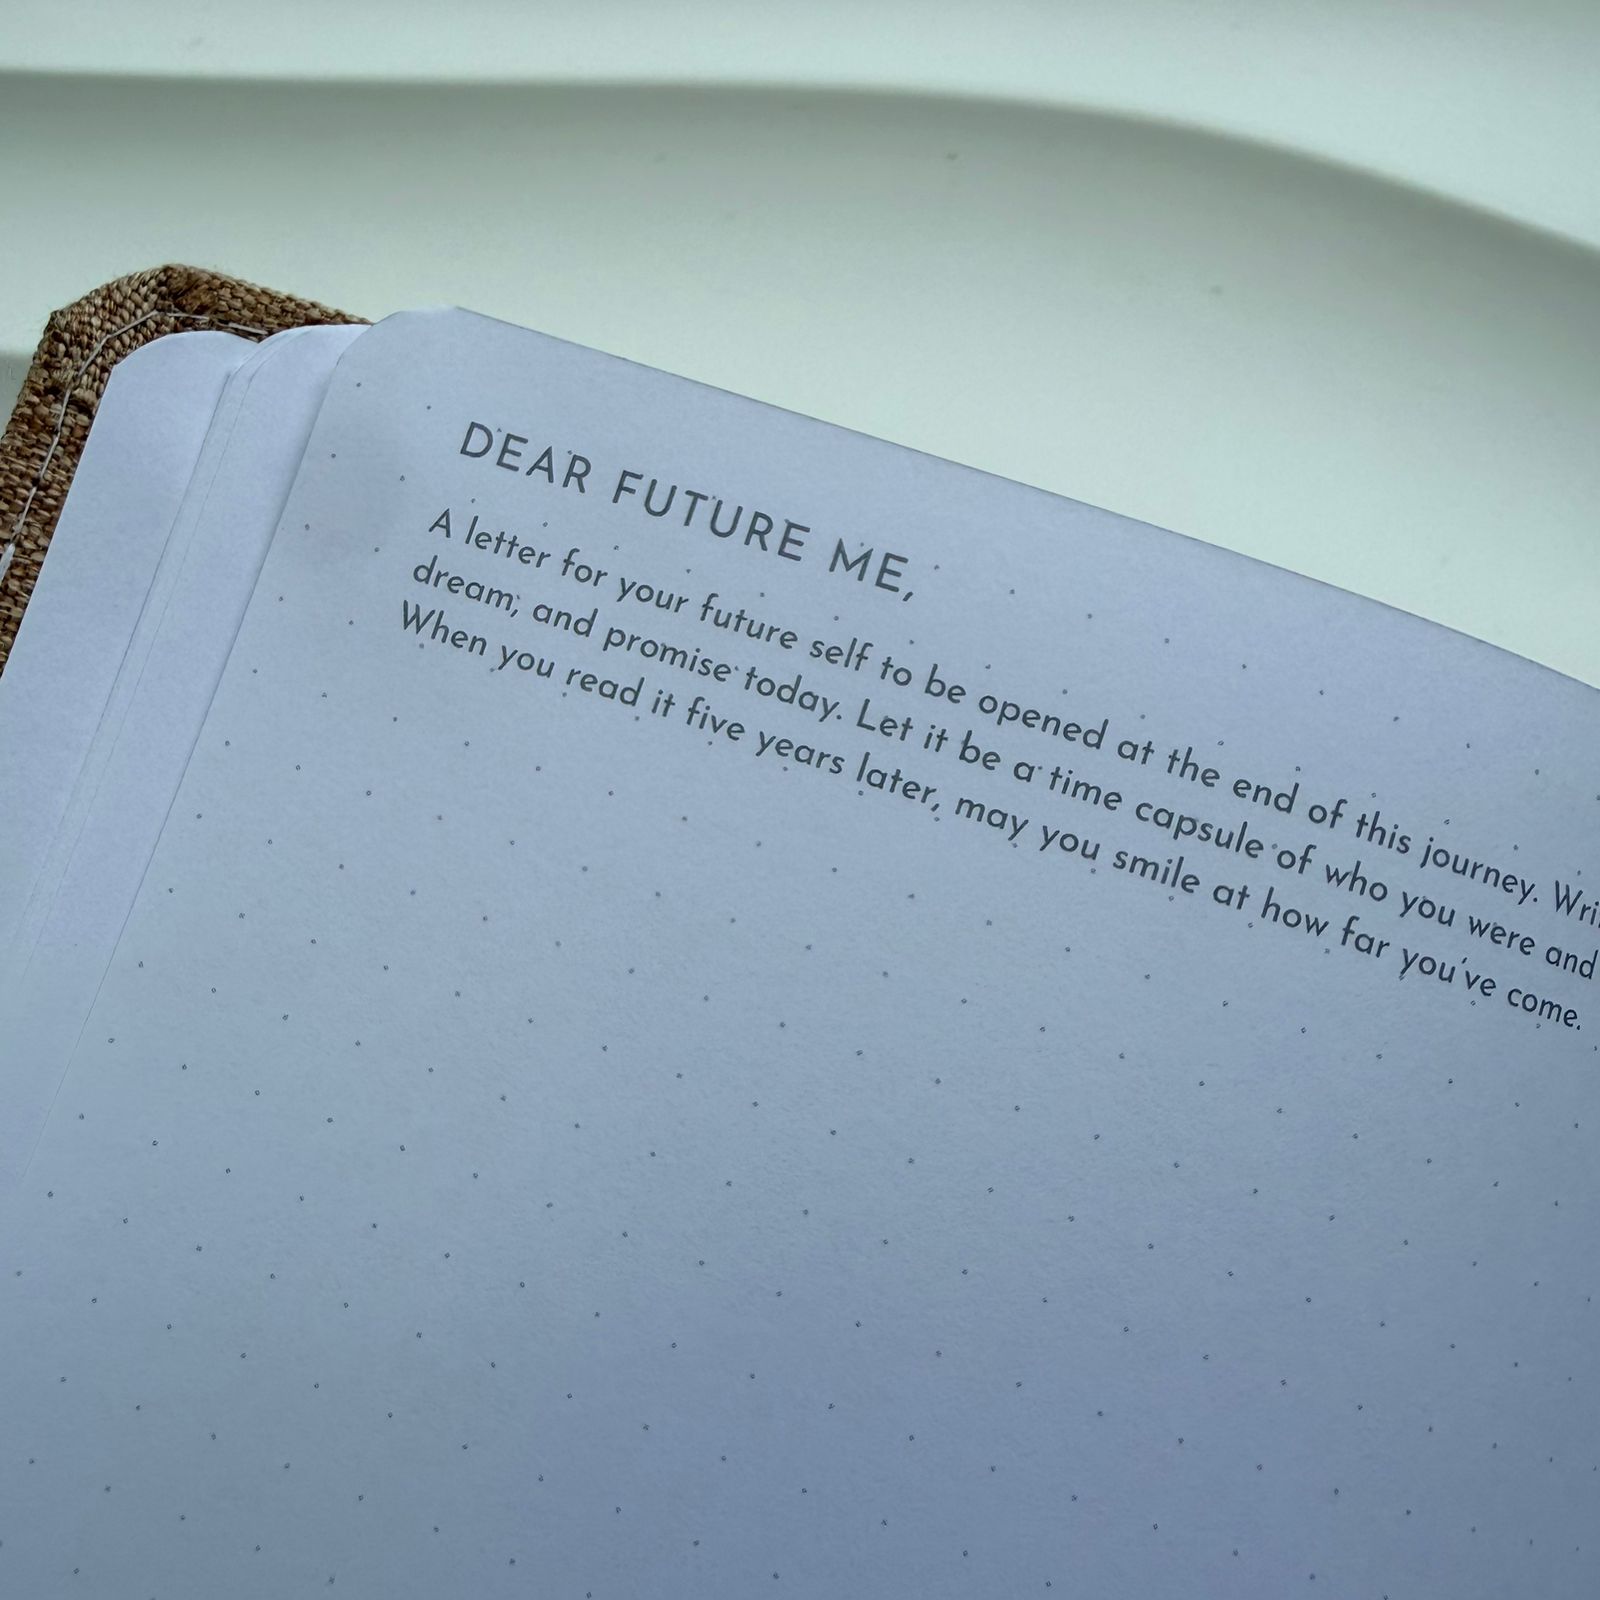 DEAR FUTURE ME,
A letter for your future self to be opened at the end of this journey.
dream, and promise today. Let it be a time capsule of who you were and
When you read it five years later, may you smile at how far you've come.